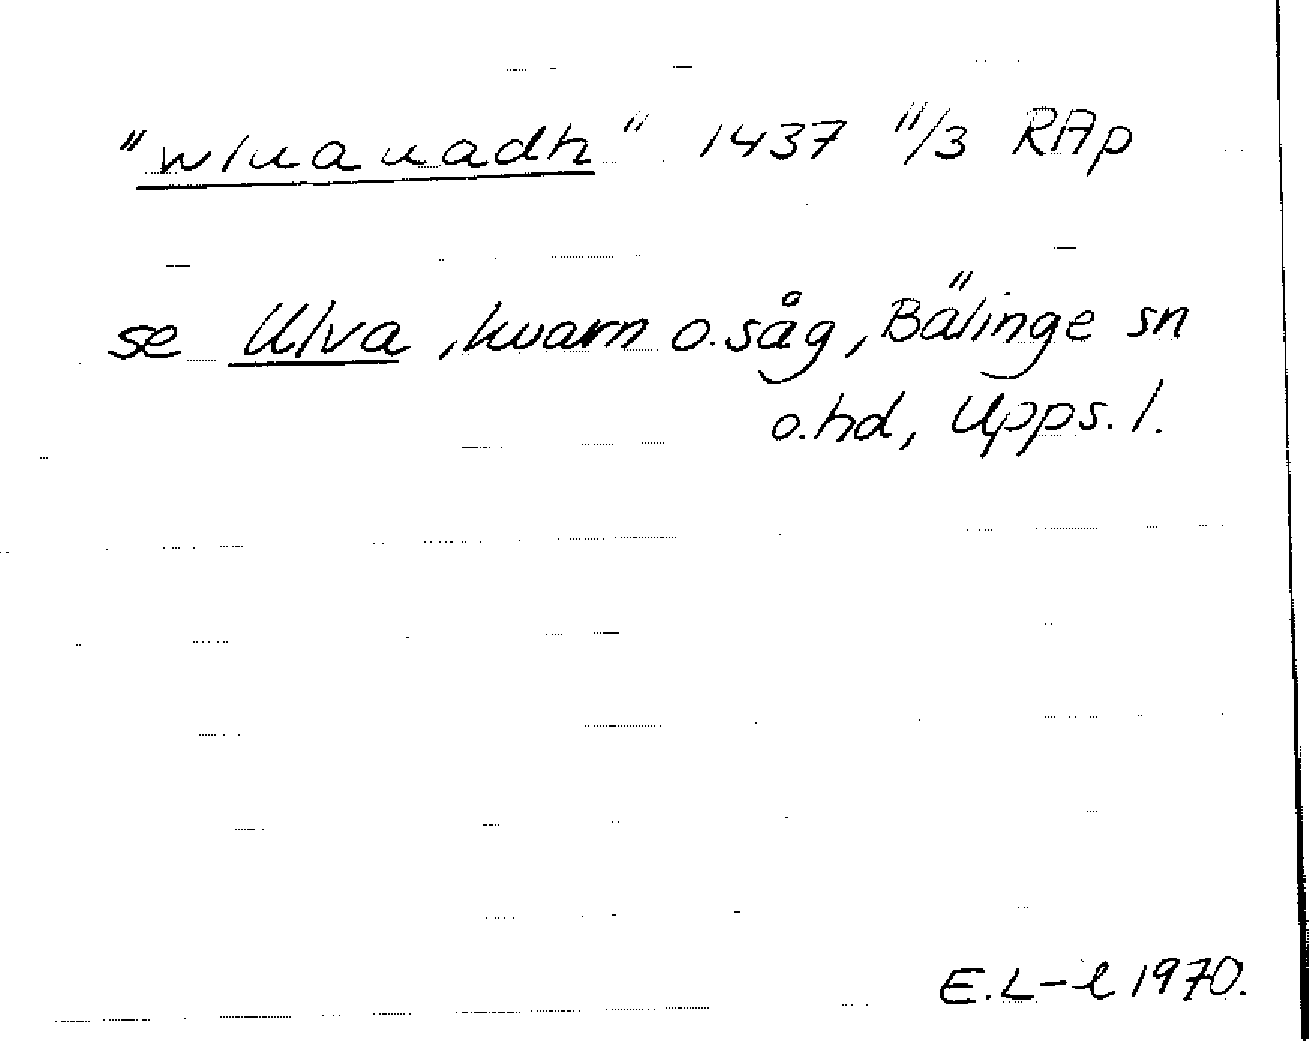 "wluauadh" 1437 11/3 RAp
se Ulva, kvarn o. såg, Bälinge sn
o. hd, Upps. l.
E.L-l 1970.